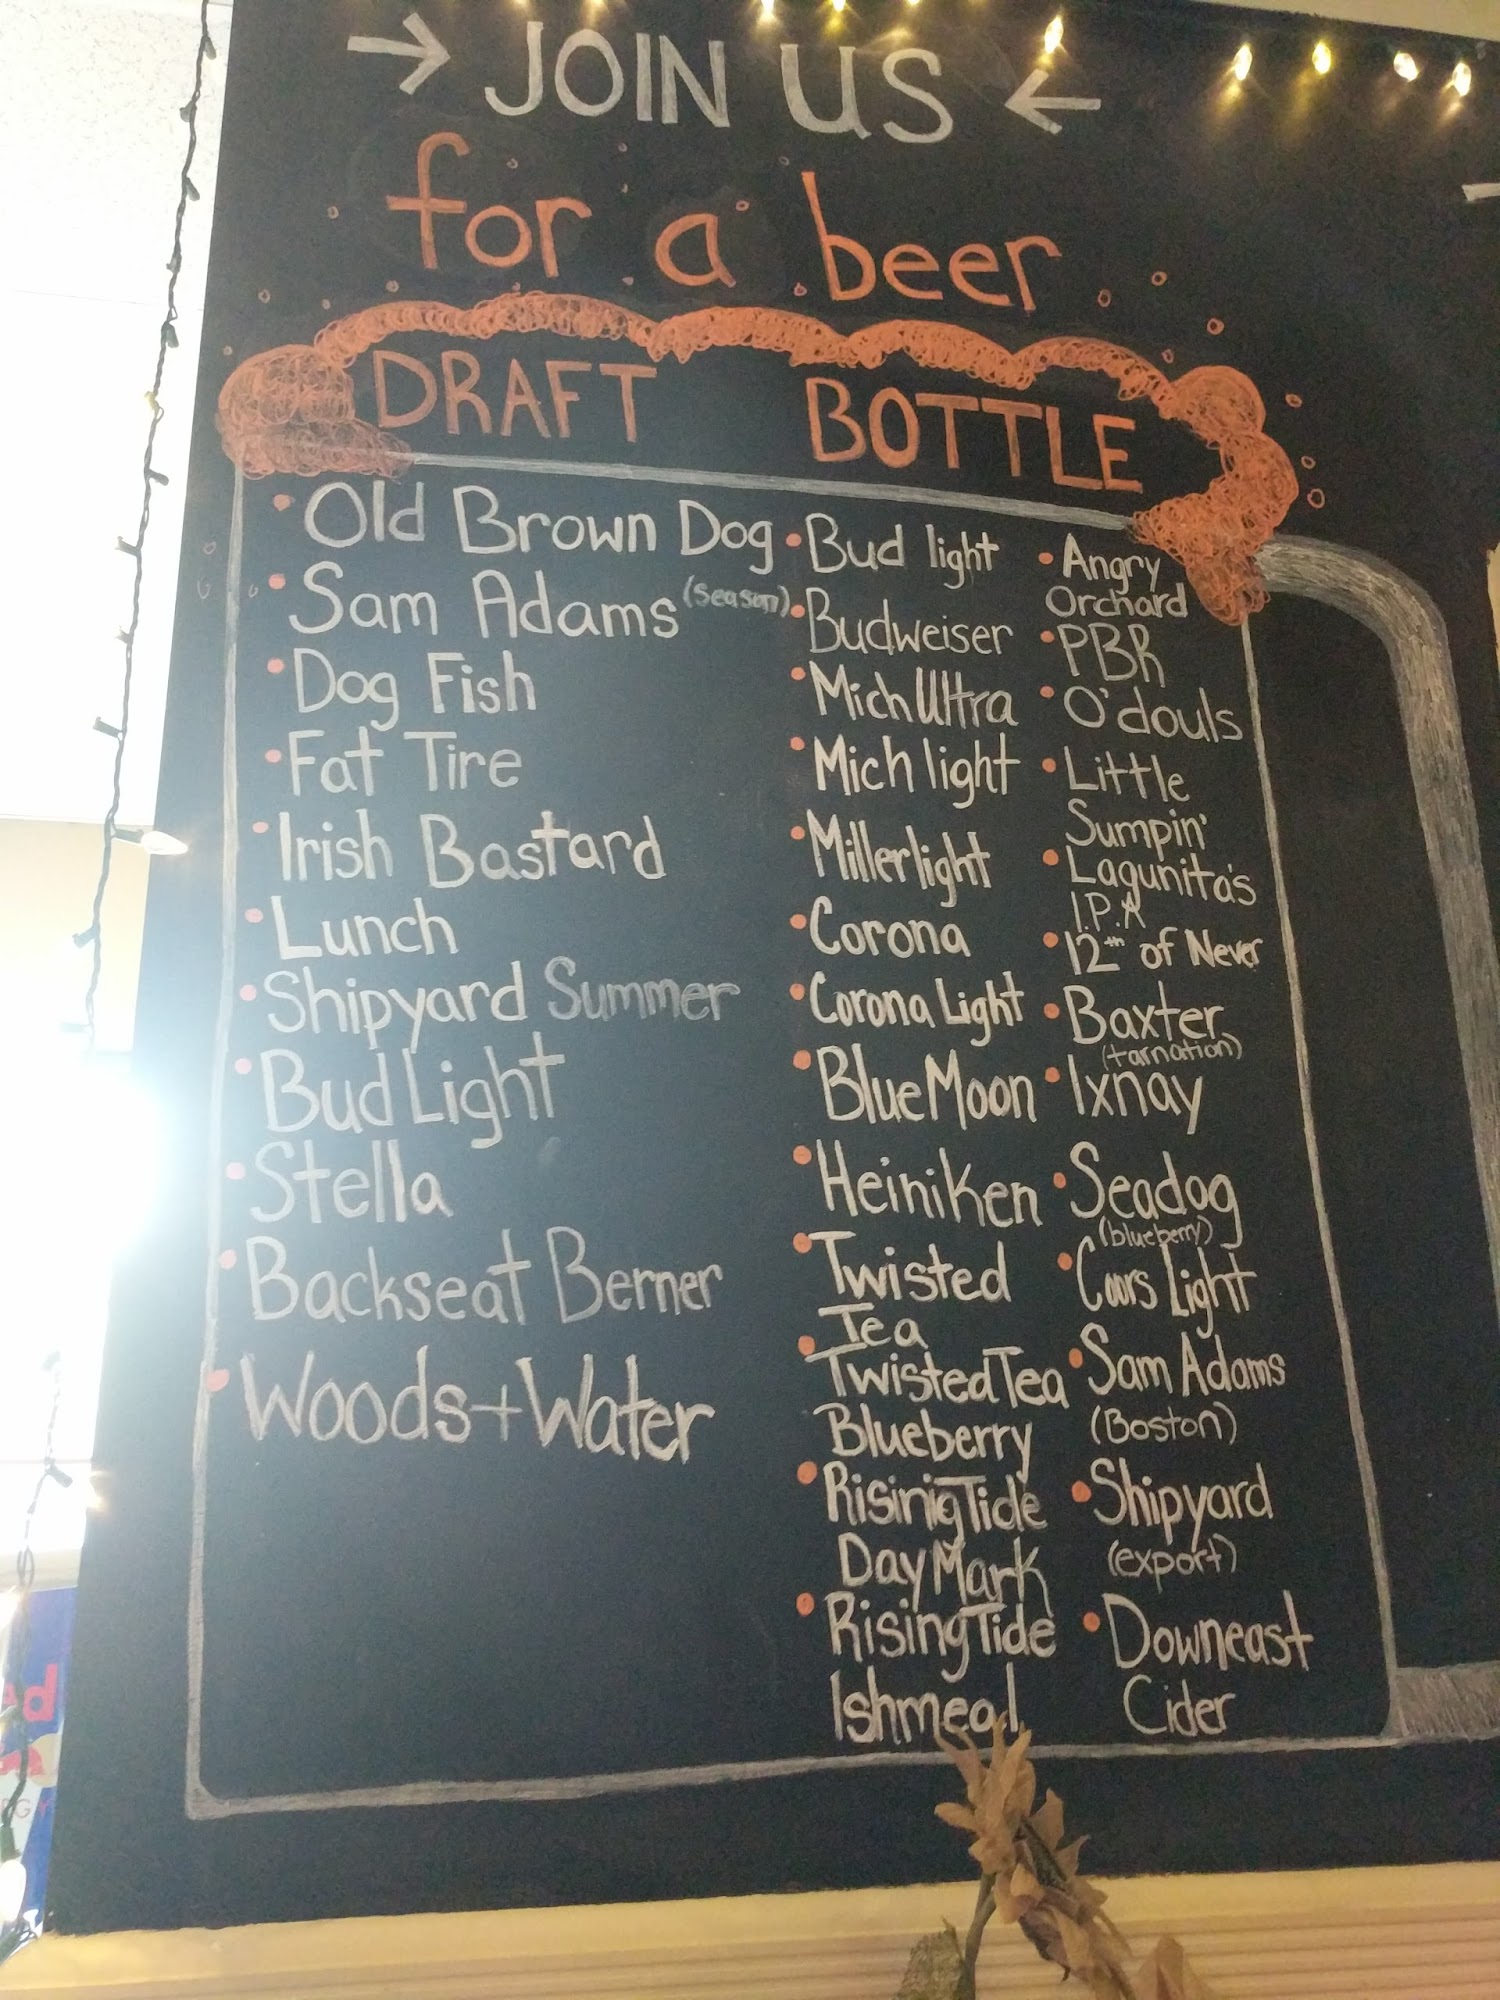 → JOIN US ←
for a beer
DRAFT
• Old Brown Dog
• Sam Adams (season)
• Dog Fish
• Fat Tire
• Irish Bastard
• Lunch
• Shipyard Summer
• Bud Light
• Stella
• Backseat Berner
• Woods + Water
BOTTLE
• Bud light
• Budweiser
• Mich Ultra
• Mich light
• Miller light
• Corona
• Corona Light
• Blue Moon
• Heiniken
• Twisted
Tea
• Twisted Tea
Blueberry
• Rising Tide
Day Mark
• Rising Tide
Ishmeal
• Angry
Orchard
• PBR
• O'douls
• Little
Sumpin'
• Lagunita's
I.P.A
• 12th of Never
• Baxter
(tarnation)
• Ixnay
• Seadog
(blueberry)
• Coors Light
• Sam Adams
(Boston)
• Shipyard
(export)
• Downeast
Cider